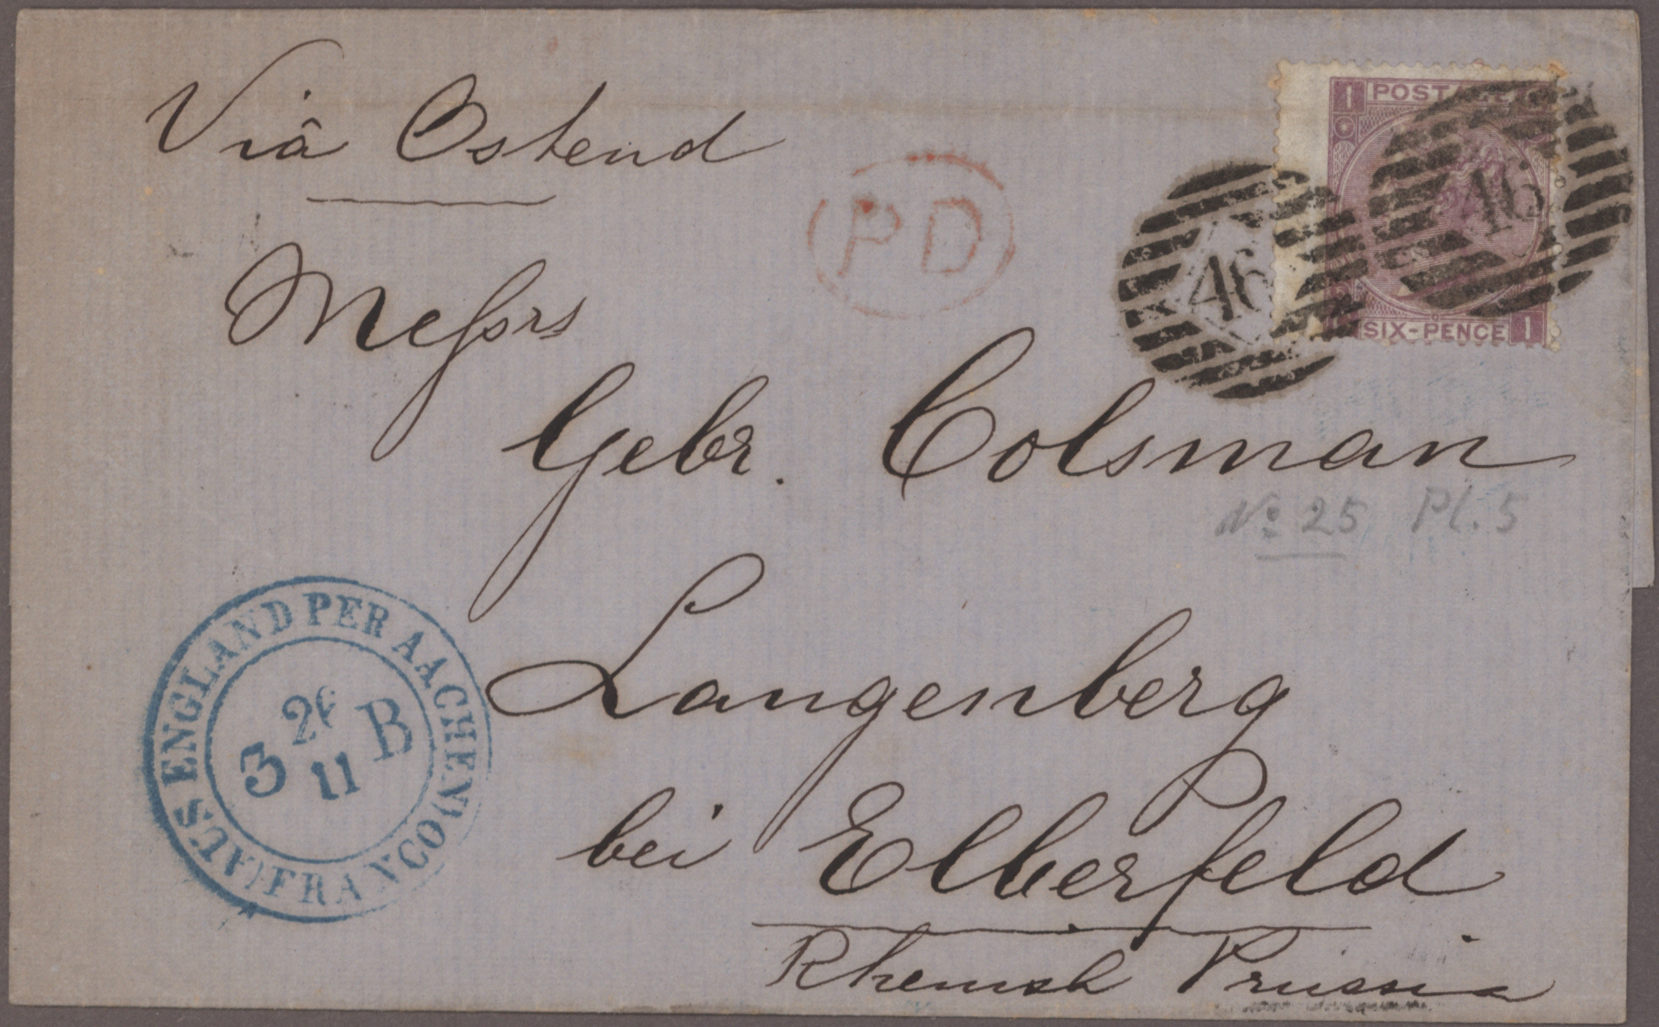 Viâ Ostend
PD
I POSTAGE
46
46
SIX-PENCE I
Messrs
Gebr. Colsman
No 25 Pl. 5
Langenberg
bei Elberfeld
Rhenish Prussia
ENGLAND PER AACHEN
FRANCO
3 11 B